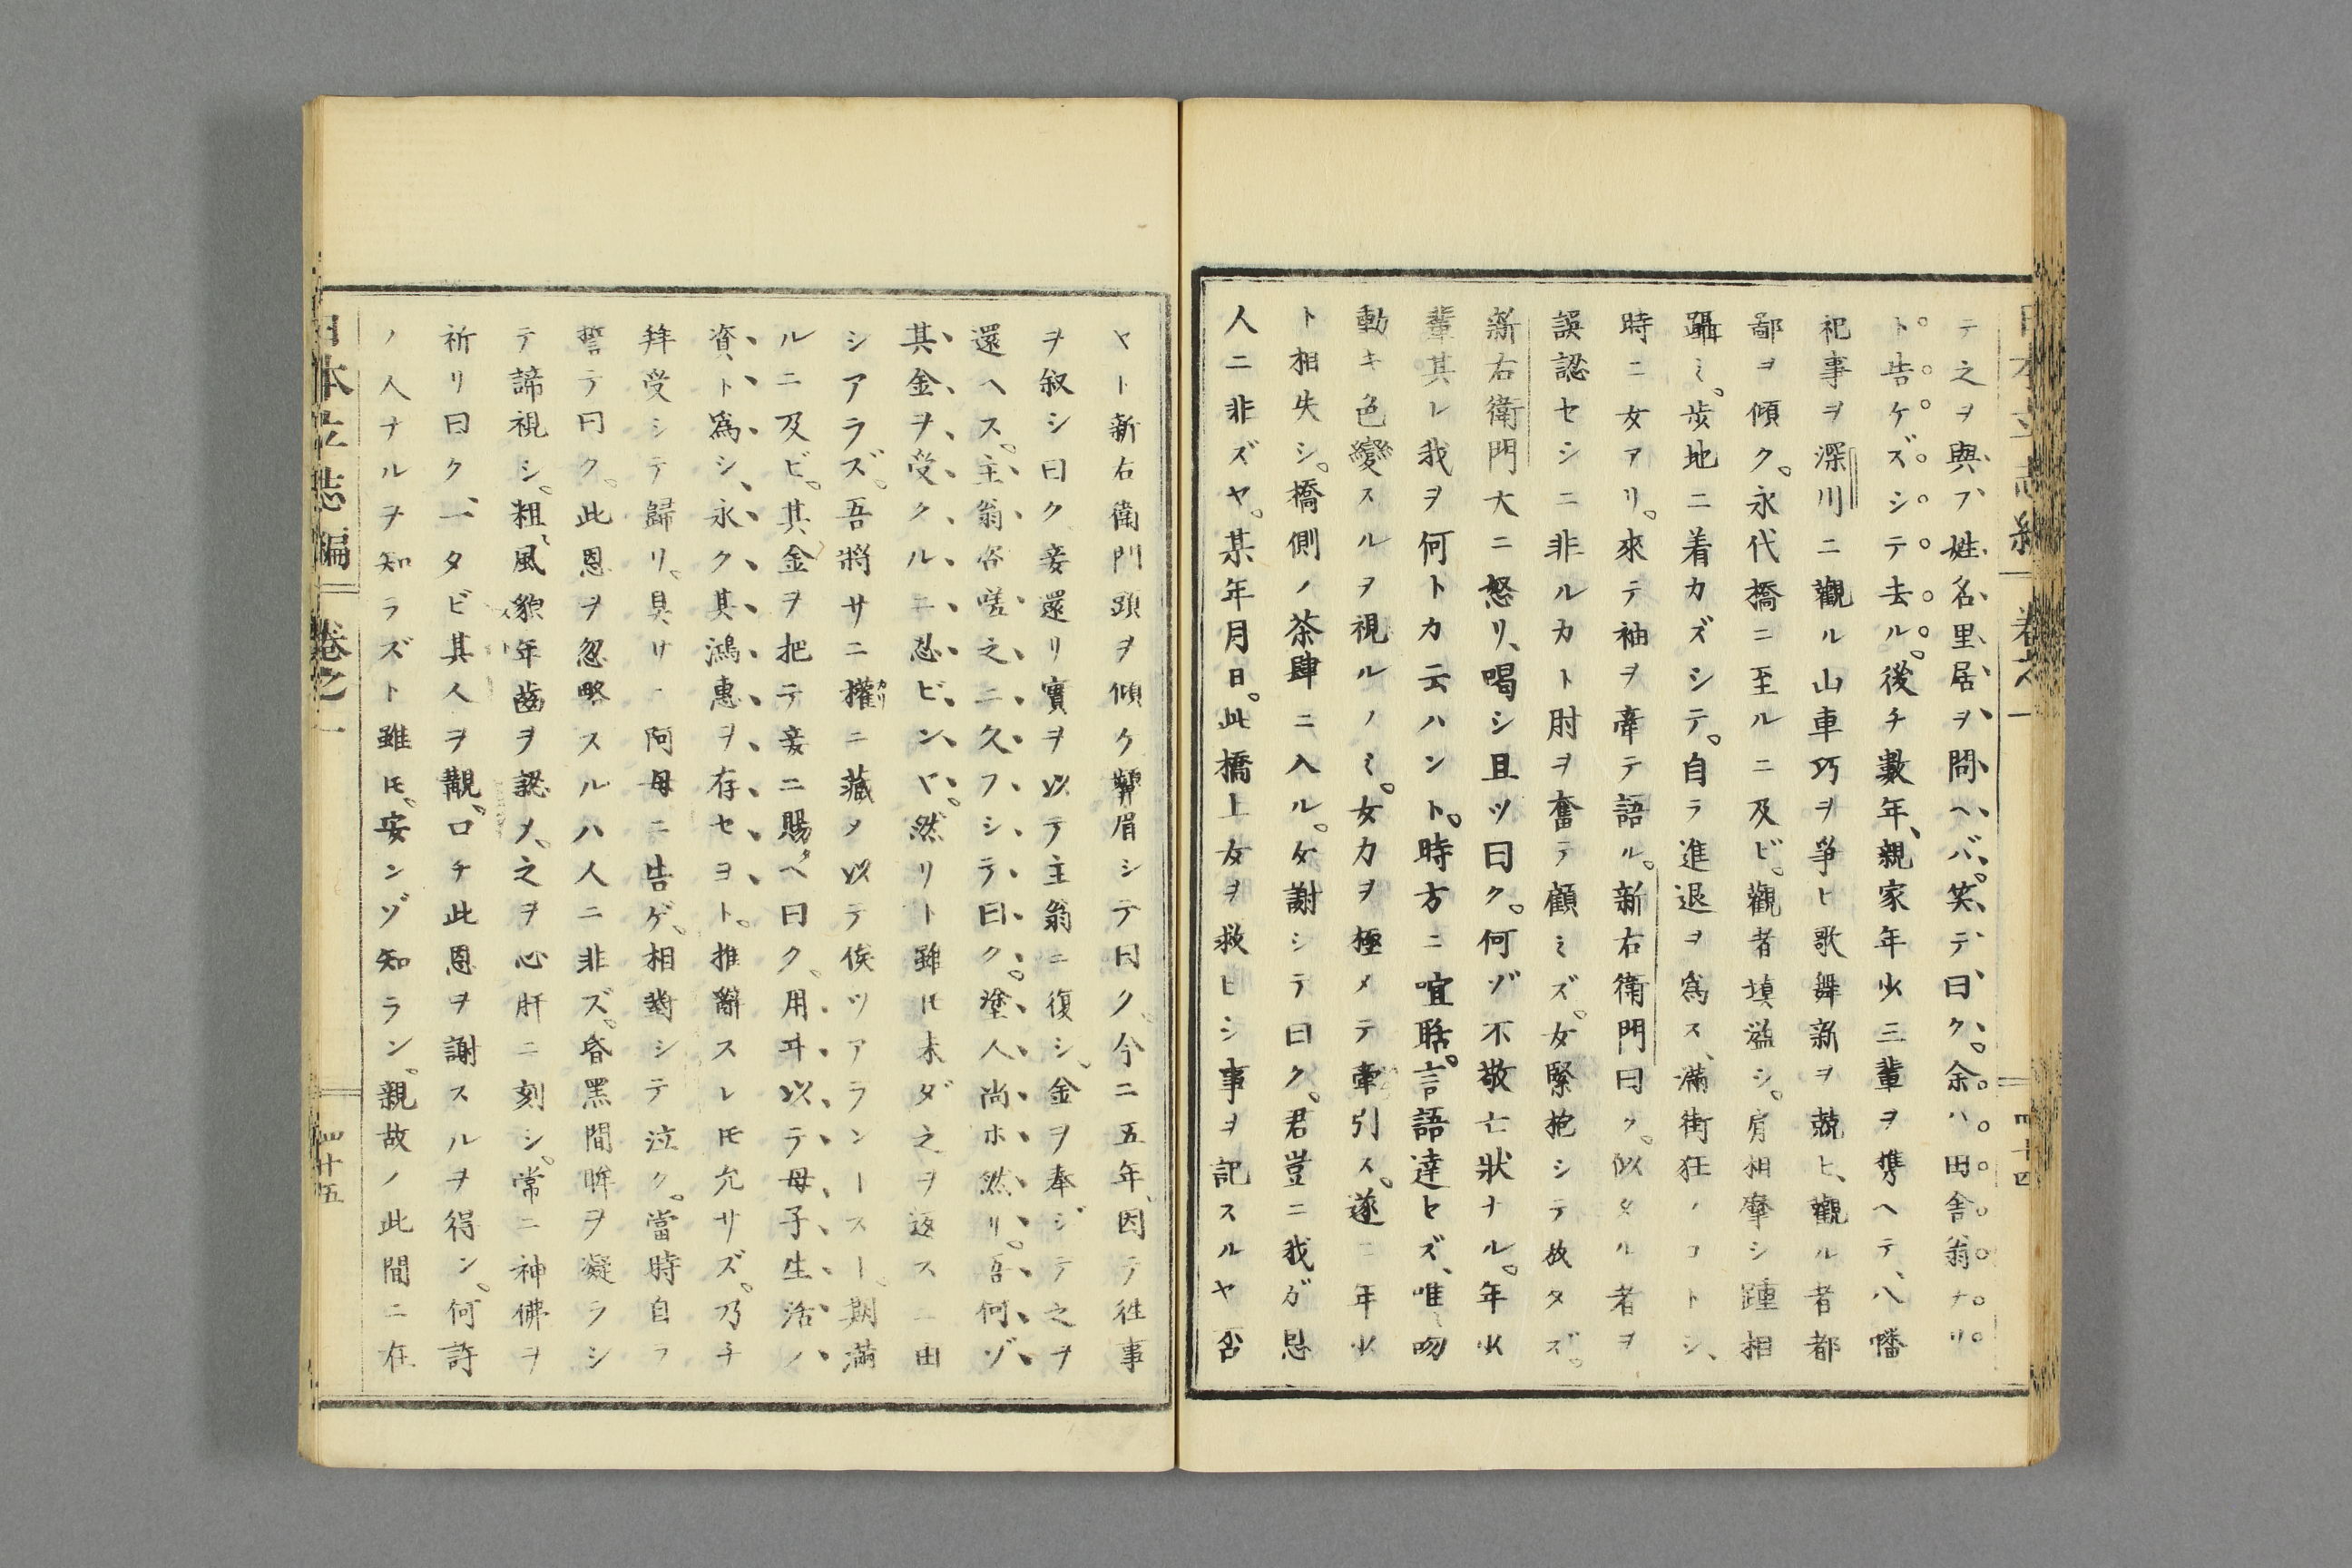 日本立志編 卷之一 四十四
テ之ヲ與フ、姓名里居ヲ問ヘバ、笑テ曰ク。余ハ田舎翁ナリ
ト告ケズシテ去ル。後チ數年、親家年少三輩ヲ攜ヘテ、八幡
祀事ヲ深川ニ觀ル山車巧ヲ爭ヒ歌舞新ヲ競ヒ、觀ル者都
鄙ヲ傾ク。永代橋ニ至ルニ及ビ。觀者塡溢シ。肩相摩シ踵相
躡ミ。歩地ニ着カズシテ。自ラ進退ヲ爲ス、滿街狂ノコトシ、
時ニ女アリ。來テ袖ヲ牽テ語ル。新右衛門曰ク。似タル者ヲ
誤認セシニ非ルカト肘ヲ奮テ顧ミズ。女緊抱シテ放タズ。
新右衛門大ニ怒リ、喝シ且ツ曰ク。何ゾ不敬亡狀ナル。年少
輩其レ我ヲ何トカ云ハント。時方ニ喧聒。言語達セズ、唯吻
動キ色變スルヲ視ルノミ。女力ヲ極メテ牽引ス。遂ニ年少
ト相失シ。橋側ノ茶肆ニ入ル。女謝シテ曰ク。君豈ニ我ガ恩
人ニ非ズヤ。某年月日。此橋上女ヲ救ヒシ事ヲ記スルヤ否
ヤト新右衛門頭ヲ傾ケ顰眉シテ曰ク、今ニ五年、因テ往事
ヲ叙シ曰ク、妾還リ實ヲ以テ主翁ニ復シ、金ヲ奉ジテ之ヲ
還ヘス。主翁咨嗟之ニ久フシテ曰ク。塗人尚ホ然リ。吾何ゾ
其金ヲ受クルニ忍ビンヤ。然リト雖ﾄﾓ未ダ之ヲ返スニ由
シアラズ。吾將サニ權ニ藏メ以テ俟ツアラントスト。期滿
ルニ及ビ。其金ヲ把テ妾ニ賜ヘ曰ク。用ヰ以テ母子生活ノ
資ト爲シ、永ク其鴻惠ヲ存セヨト。推辭スレﾄﾓ允サズ。乃チ
拜受シテ歸リ。具サニ阿母ニ告ゲ、相對シテ泣ク。當時自ラ
誓テ曰ク。此恩ヲ忽略スルハ人ニ非ズ。昏黑間眸ヲ凝ラシ
テ諦視シ。粗風貌年齒ヲ認メ、之ヲ心肝ニ刻シ。常ニ神佛ヲ
祈リ曰ク、一タビ其人ヲ覯。口チ此恩ヲ謝スルヲ得ン。何許
ノ人ナルヲ知ラズト雖ﾄﾓ。安ンゾ知ラン。親故ノ此間ニ在
日本立志編 卷之一 四十五